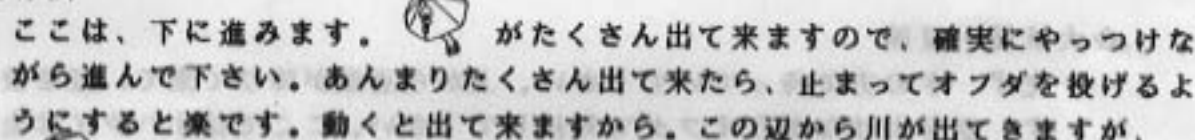 ここは、下に進みます。 がたくさん出て来ますので、確実にやっつけな
がら進んで下さい。あんまりたくさん出て来たら、止まってオフダを投げるよ
うにすると楽です。動くと出て来ますから。この辺から川が出てきますが、